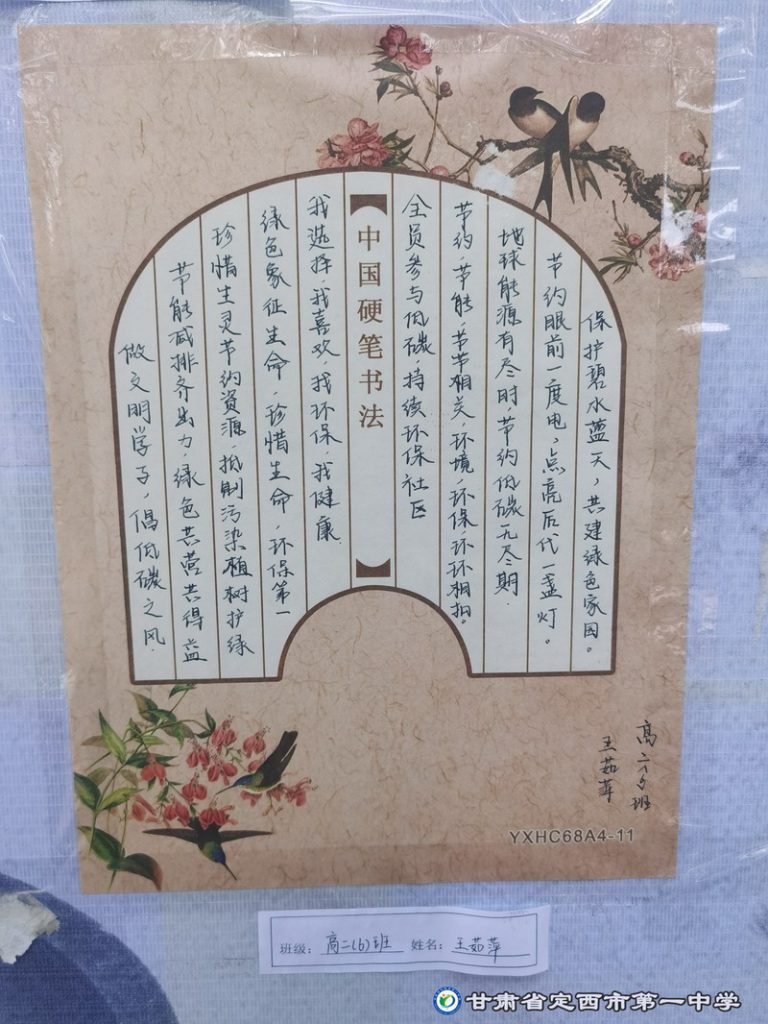 保护碧水蓝天，共建绿色家园。
节约眼前一度电，点亮后代一盏灯。
地球能源有尽时，节约低碳无尽期.
节约，节能，节节相关，环境，环保，环环相扣。
全员参与低碳，持续环保社区
中国硬笔书法
我选择，我喜欢，我环保，我健康.
绿色象征生命，珍惜生命，环保第一
珍惜生灵节约资源，抵制污染植树护绿
节能减排齐出力，绿色共营共得益
做文明学子，倡低碳之风.
高二六班
王茹萍
YXHC68A4-11
班级：高二(6)班 姓名：王茹萍
甘肃省定西市第一中学